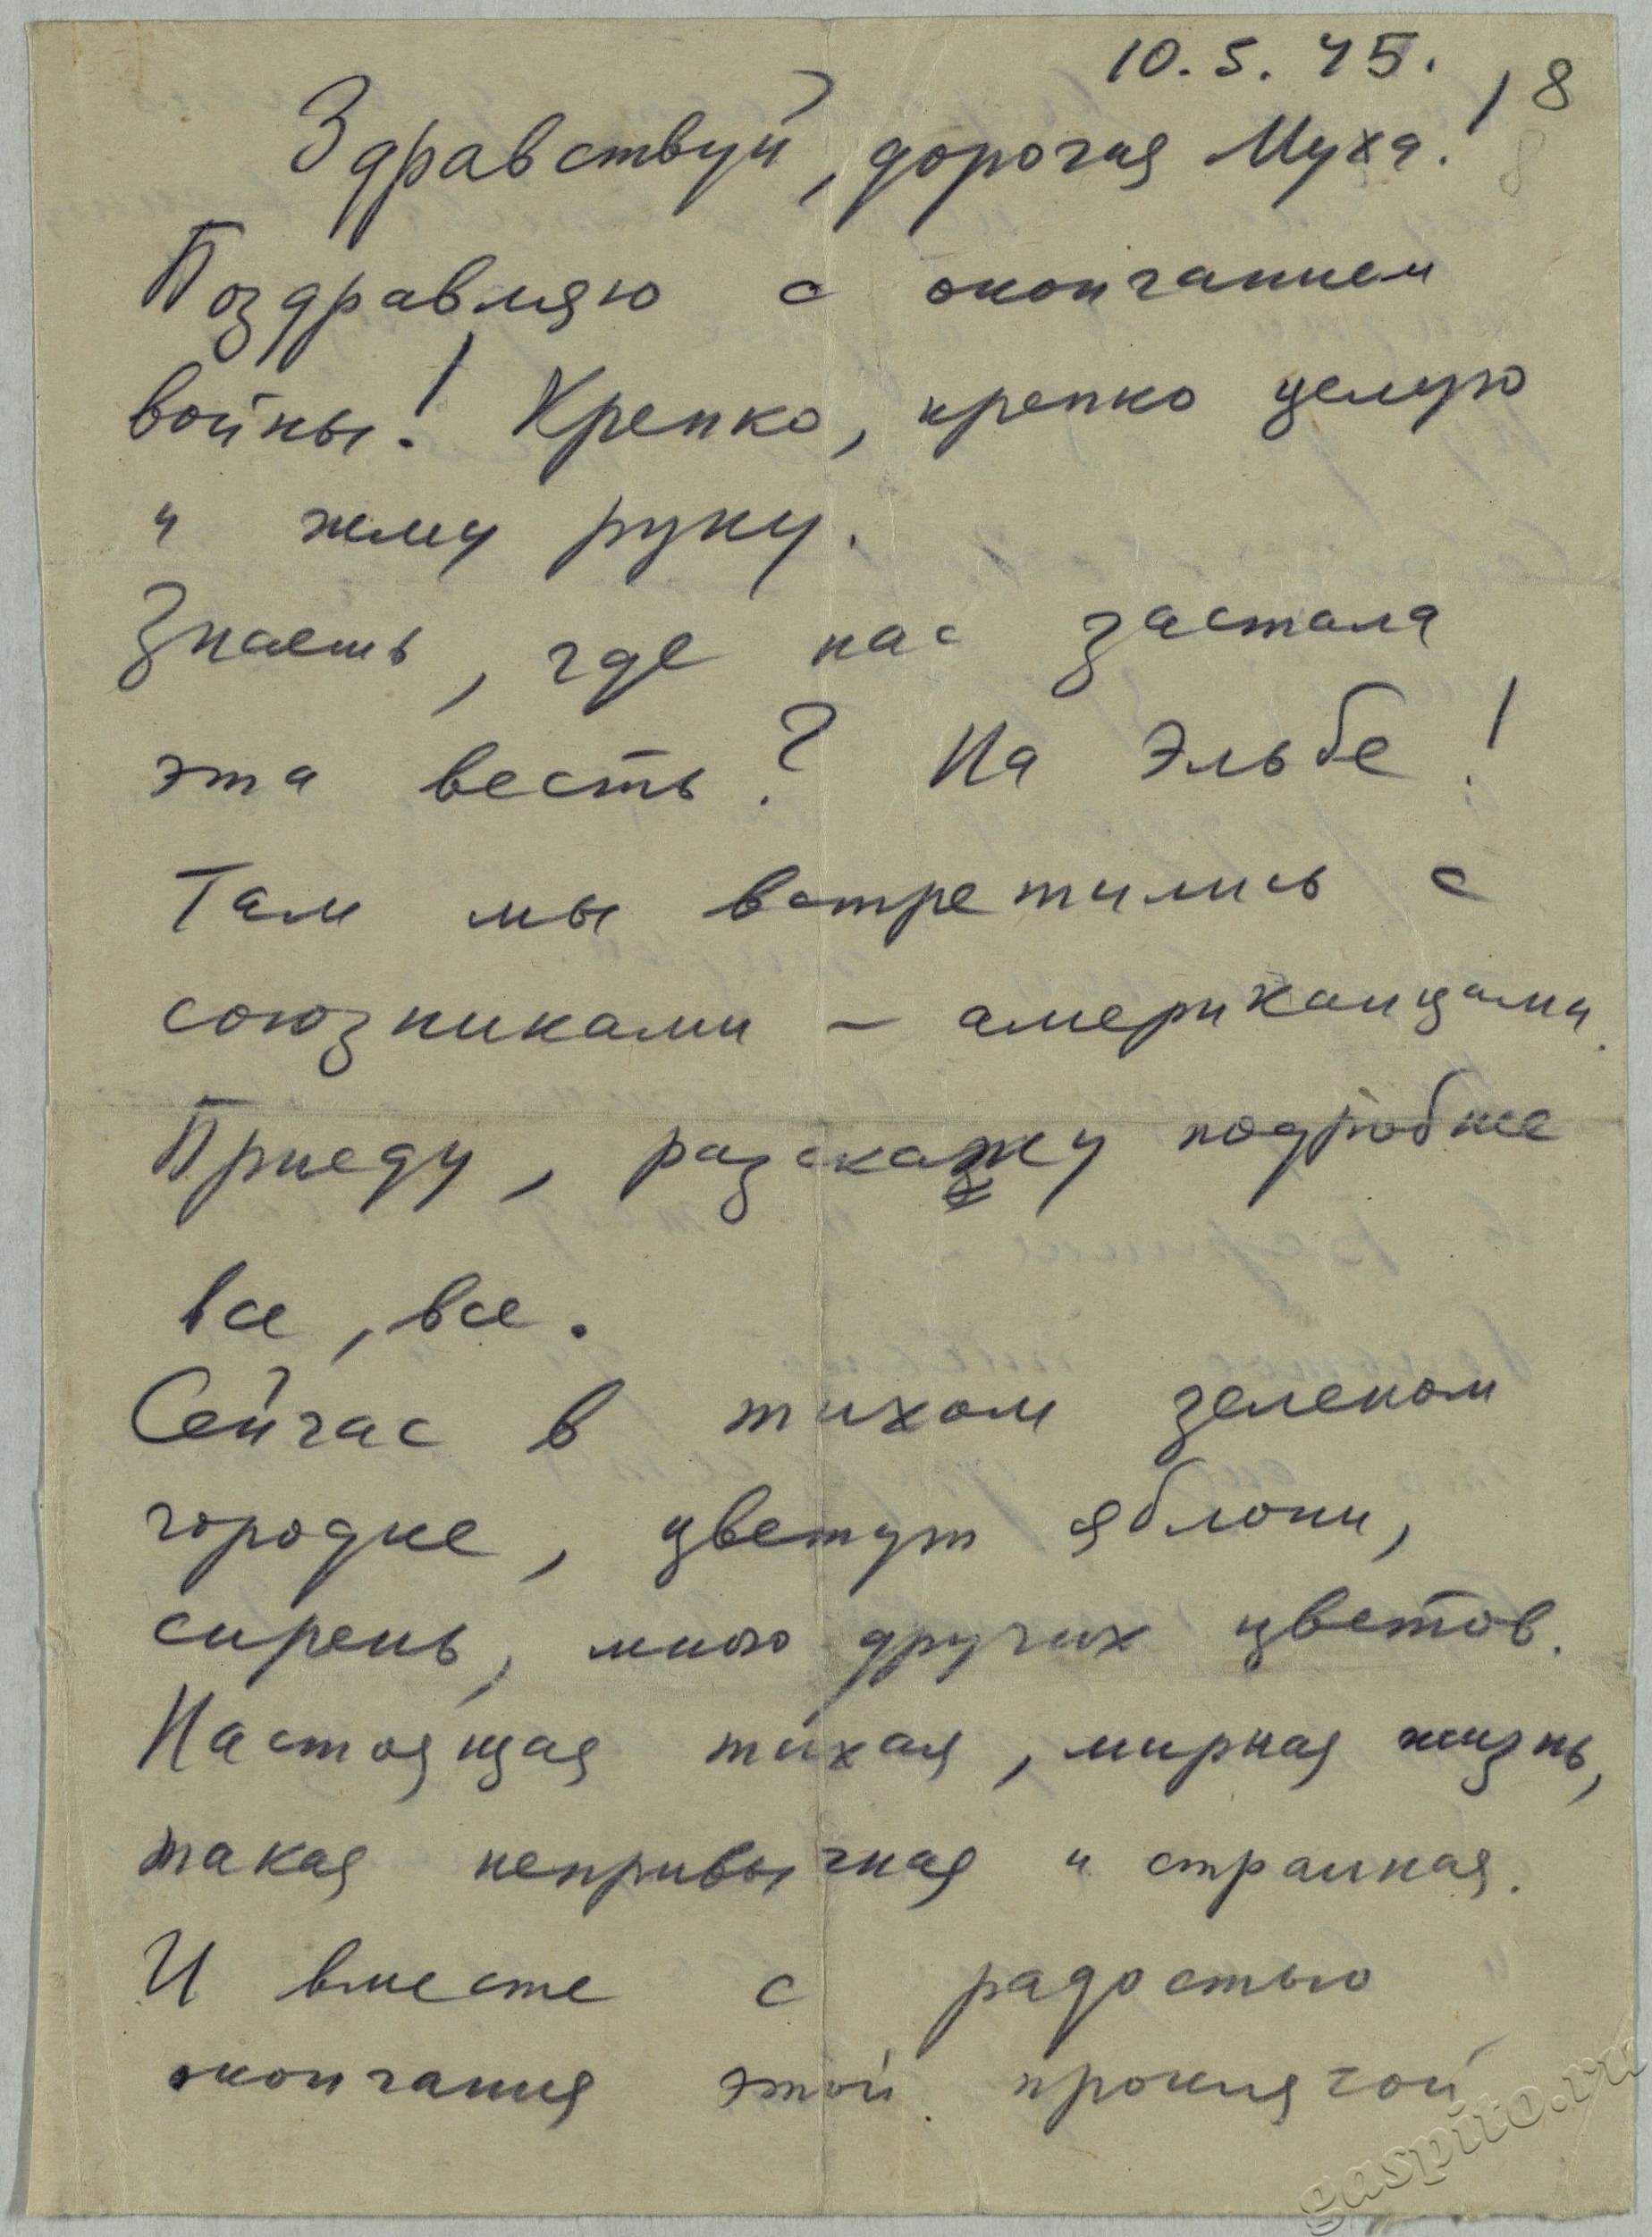 10.5.45.
8
Здравствуй, дорогая Муха!
8
Поздравляю с окончанием
войны! Крепко, крепко целую
и жму руку.
Знаешь, где нас застала
эта весть? На Эльбе!
Там мы встретились с
союзниками – американцами.
Приеду, разскажу подробнее
все, все.
Сейчас в тихом зеленом
городке, цветут яблони,
сирень, много других цветов.
Настоящая тихая, мирная жизнь,
такая непривычная и странная.
И вместе с радостью
окончания этой проклятой
gaspito.ru